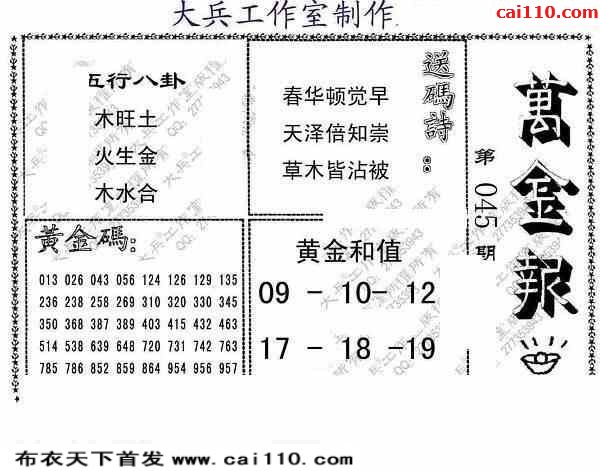 大兵工作室制作
cai110.com
五行八卦
木旺土
火生金
木水合
送碼詩：
春华顿觉早
天泽倍知崇
草木皆沾被
萬金報
第 045 期
黃金碼：
013 026 043 056 124 126 129 135
236 238 258 269 310 320 330 345
350 368 387 389 403 415 432 463
514 538 639 648 720 731 742 763
785 786 852 859 864 954 956 957
黄金和值
09 - 10- 12
17 - 18 -19
布衣天下首发 www.cai110.com